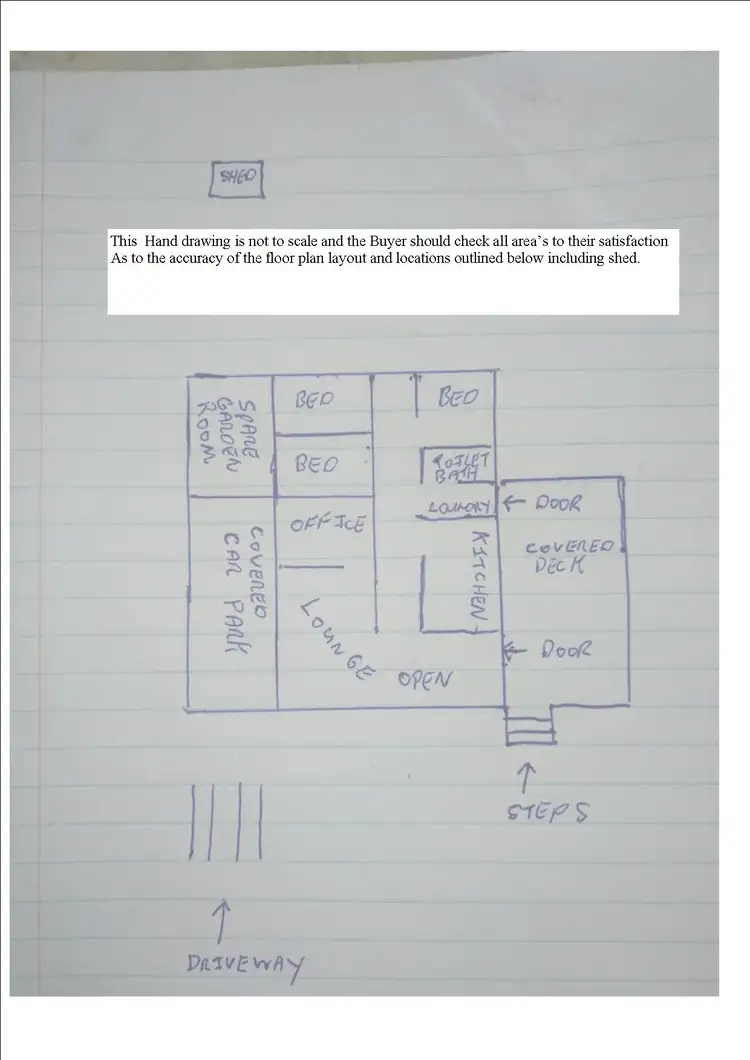 SHED
This Hand drawing is not to scale and the Buyer should check all area's to their satisfaction
As to the accuracy of the floor plan layout and locations outlined below including shed.
SPARE
GARDEN
ROOM
BED
BED
BED
TOILET
BATH
LOUNDRY
DOOR
OFFICE
COVERED
CAR PARK
KITCHEN
COVERED
DECK
LOUNGE
DOOR
OPEN
STEPS
DRIVEWAY